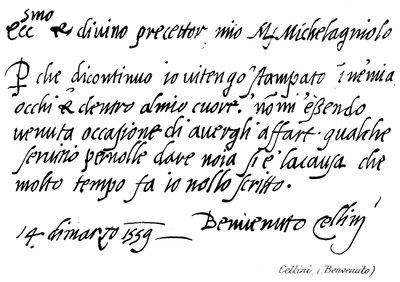 ecc smo & divino precettor, mio M. Michelagniolo
P che dicontinuo io vitengo stampato inemia
occhi & dentro almio cuore. nomi essendo
venuta occasione di avergli affart qualche
servitio pernolle dare noia si e lacausa che
molto tempo fa io nollo scritto.
14 dimarzo 1559
Benvenuto Cellini
Cellini (Benvenuto)